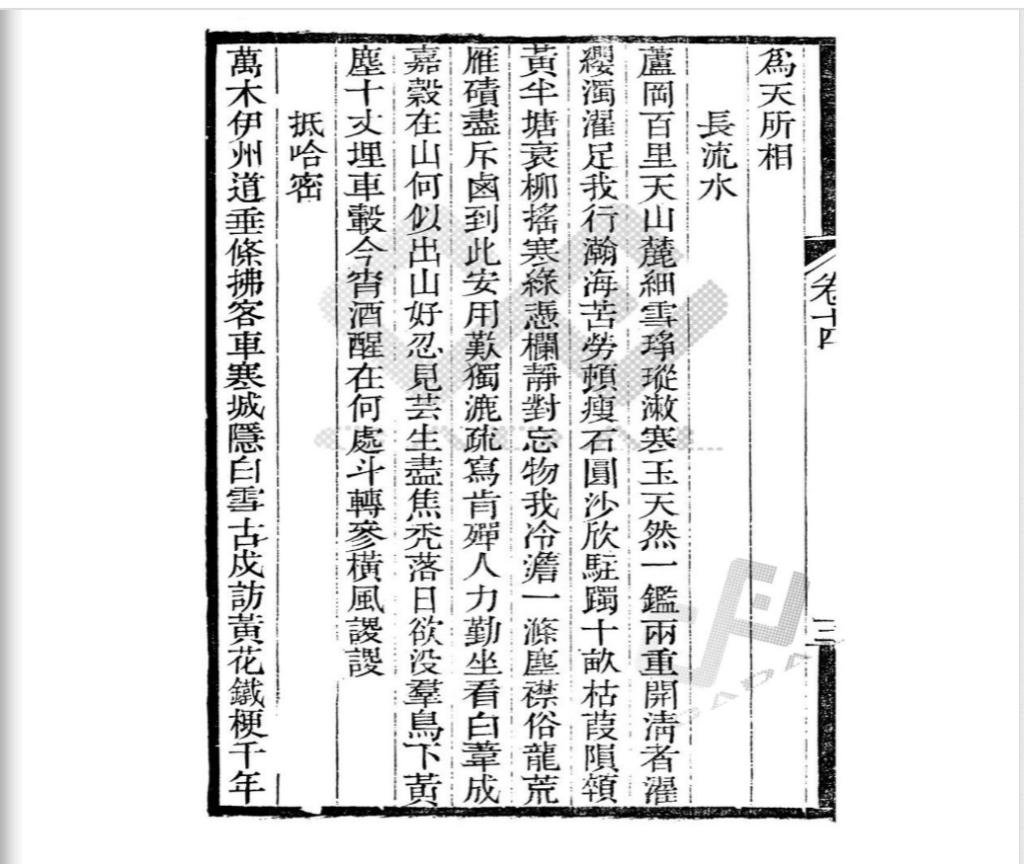 為天所相
長流水
蘆岡百里天山麓細雪琤瑽漱寒玉天然一鑑兩重開淸者濯
纓濁濯足我行瀚海苦勞頓瘦石圓沙欣駐躅十畝枯葭隕䪴
黃半塘衰柳搖寒綠憑欄靜對忘物我冷澹一滌塵襟俗龍荒
雁磧盡斥鹵到此安用歎獨漉疏寫肯殫人力勤坐看白葦成
嘉穀在山何似出山好忍見芸生盡焦禿落日欲没羣鳥下黃
塵十丈埋車轂今宵酒醒在何處斗轉參橫風謖謖
抵哈密
萬木伊州道垂條拂客車寒城隱白雪古戍訪黃花鐵梗千年
卷十四
三